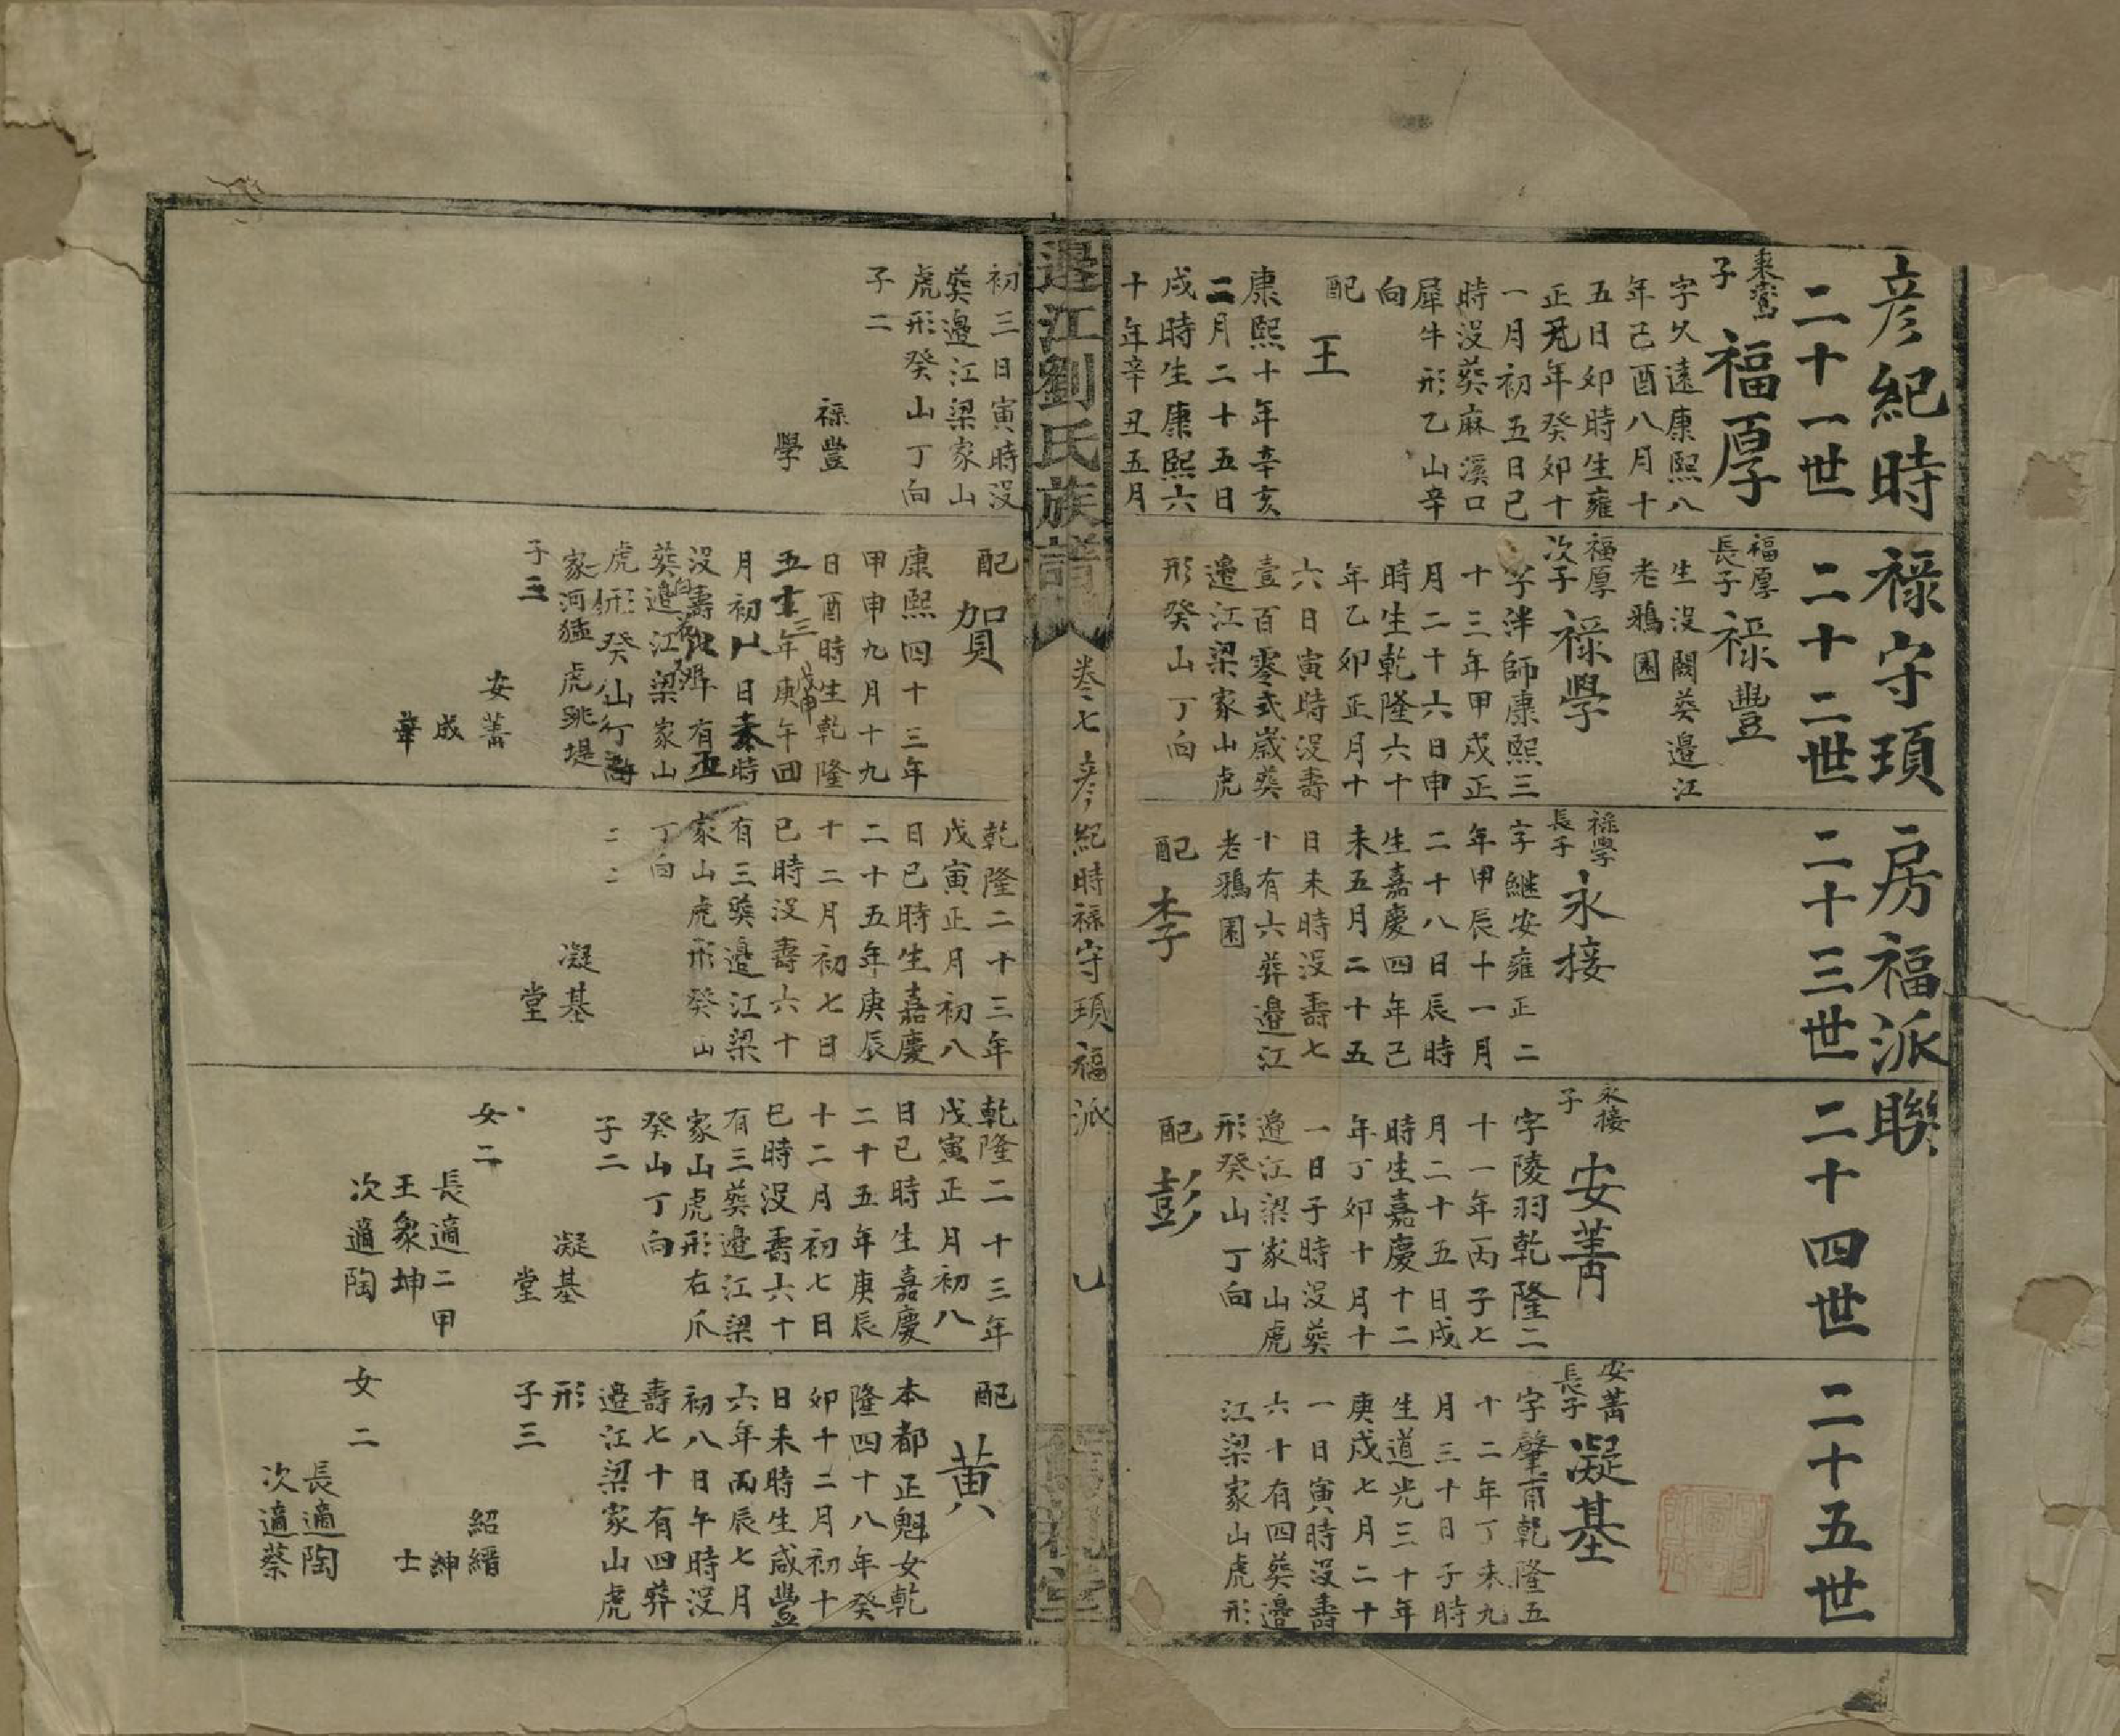 彦紀時祿守頊房福派聯
二十一世
子
福厚
字久遠康熙八
年己酉八月十
五日卯時生雍
正元年癸卯十
一月初五日巳
時没葬麻溪口
犀牛形乙山辛
向
配
王
康熙十年辛亥
二月二十五日
戌時生康熙六
十年辛丑五月
初三日寅時没
葬邉江梁家山
虎形癸山丁向
子二
祿豐
學
二十二世
福厚
長子
祿豐
生没闕葵邉江
老鴉園
福厚
次子
祿學
字泮師康熙三
十三年甲戌正
月二十六日申
時生乾隆六十
年乙卯正月十
六日寅時没壽
壹百零弍歲葵
邉江梁家山虎
形癸山丁向
配
賀
康熙四十三年
甲申九月十九
日酉時生乾隆
家河猛虎跳堤
子三
安菁
成
華
二十三世
祿學
長子
永接
字継安雍正二
年甲辰十一月
二十八日辰時
生嘉慶四年己
未五月二十五
日未時没壽七
十有六葬邉江
老鴉園
配
李
乾隆二十三年
戊寅正月初八
日巳時生嘉慶
二十五年庚辰
十二月初七日
巳時没壽六十
有三葵邉江梁
家山虎形癸山
丁向
凝基
堂
二十四世
永接
子
安菁
字陵羽乾隆二
十一年丙子七
月二十五日戌
時生嘉慶十二
年丁卯十月十
一日子時没葵
邉江梁家山虎
形癸山丁向
配
彭
乾隆二十三年
戊寅正月初八
日巳時生嘉慶
二十五年庚辰
十二月初七日
巳時没壽六十
有三葵邉江梁
家山虎形右爪
癸山丁向
子二
凝基
堂
女二
長適二甲
王衆坤
次適陶
二十五世
安菁
長子
凝基
字肇甫乾隆五
十二年丁未九
月三十日子時
生道光三十年
庚戌七月二十
一日寅時没壽
六十有四葵邉
江梁家山虎形
配
黄
本都正魁女乾
隆四十八年癸
卯十二月初十
日未時生咸豐
六年丙辰七月
初八日午時没
壽七十有四葬
邉江梁家山虎
形
子三
紹縉
紳
士
女二
長適陶
次適蔡
邉江劉氏族譜
卷之七
彦紀時祿守頊福派